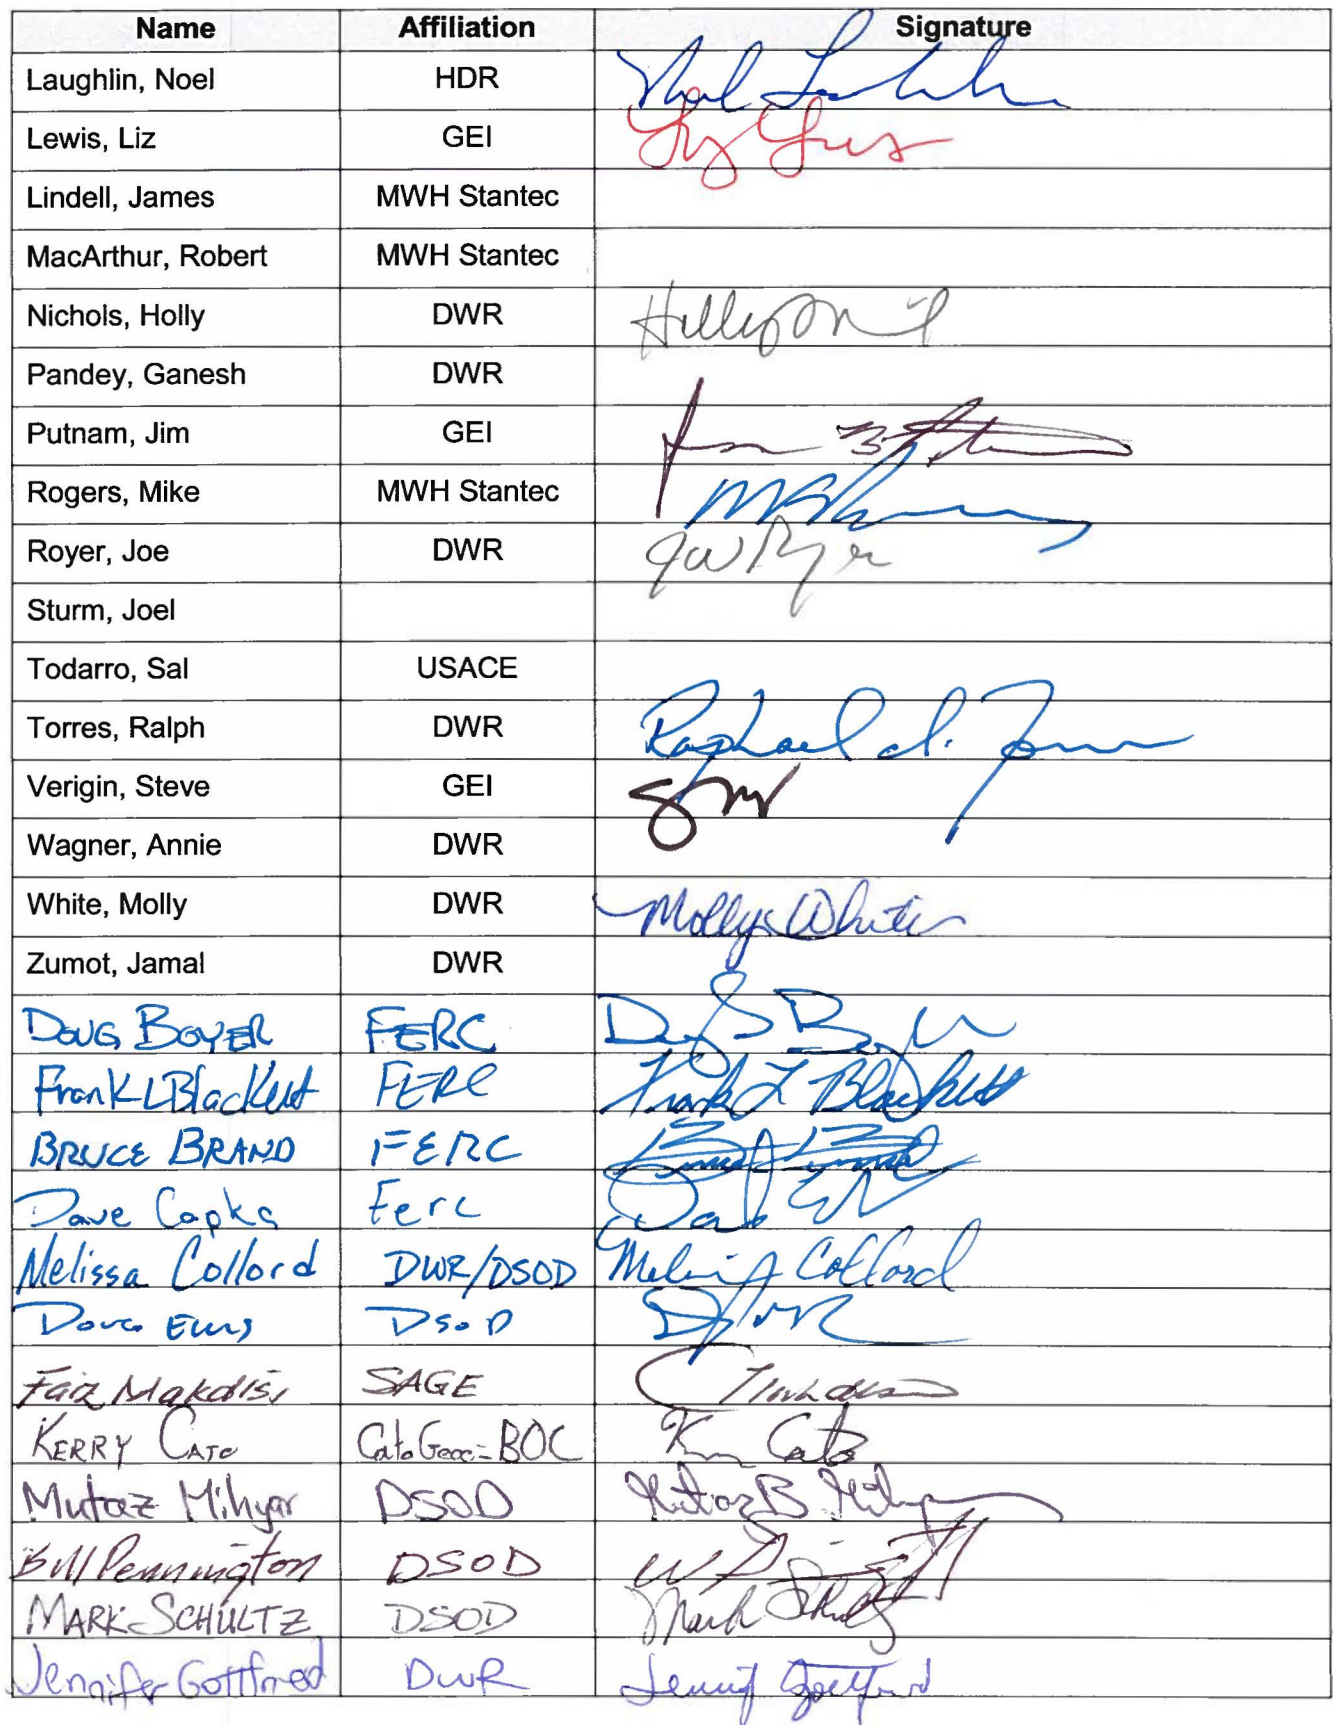 Name Affiliation Signature
Laughlin, Noel HDR
Lewis, Liz GEI
Lindell, James MWH Stantec
MacArthur, Robert MWH Stantec
Nichols, Holly DWR
Pandey, Ganesh DWR
Putnam, Jim GEI
Rogers, Mike MWH Stantec
Royer, Joe DWR JW Royer
Sturm, Joel
Todarro, Sal USACE
Torres, Ralph DWR Raphael A. Torres
Verigin, Steve GEI
Wagner, Annie DWR
White, Molly DWR Molly White
Zumot, Jamal DWR
DOUG BOYER FERC
Frank L Blackett FERC Frank L Blackett
BRUCE BRAND FERC
Dave Capka Ferc
Melissa Collord DWR/DSOD Melissa Collord
DSOD
Faiz Makdisi SAGE
KERRY CATO BOC Cato
Mutaz Mihyar DSOD Mutaz B. Mihyar
Bill Pennington DSOD
MARK SCHULTZ DSOD Mark Schultz
Jennifer Gottfried DWR